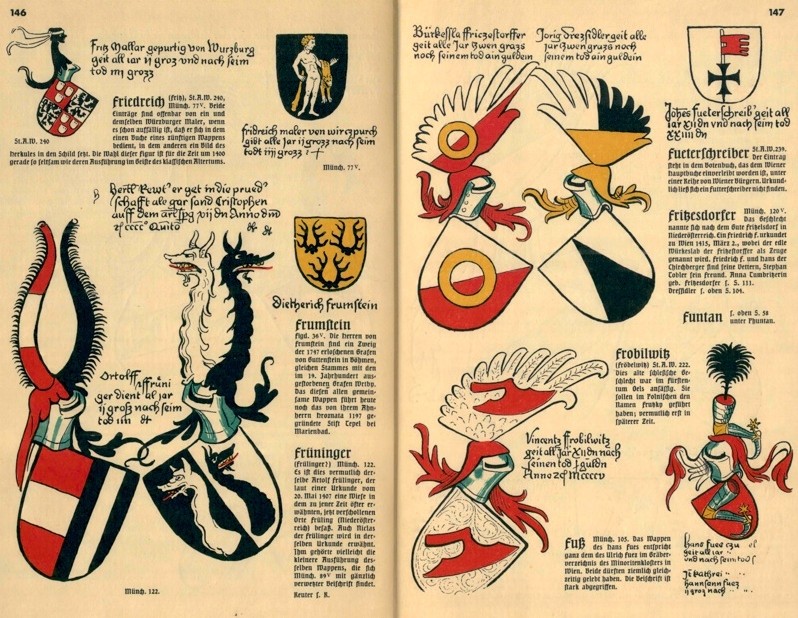 146
Fritz Mallar gepurtig von Wurzburg
geit all iar ij groz vnd nach seim
tod iiij grozz
friedreich (fritz); St.A.W. 240,
Münch. 77 V. Beide
Einträge sind offenbar von ein und
demselben Würzburger Maler, wenn
es schon auffällig ist, daß er sich in dem
einen Buche eines zünftigen Wappens
bedient, in dem anderen ein Bild des
Herkules in den Schild setzt. Die Wahl dieser Figur ist für die Zeit um 1400
gerade so seltsam wie deren Ausführung im Geiste des klassischen Altertums.
St.A.W. 240
fridreich maler von wirczpurch
gibt alle jar ij grosz nach seim
todt iiij grosz
Münch. 77 V.
er get in die prued
schafft als gar sand Cristophen
auff dem
Anno
Quito
Dietherich frumstein
frumstein
figd. 36 V. Die Herren von
frumstein sind ein Zweig
der 1797 erloschenen Grafen
von Guttenstein in Böhmen,
gleichen Stammes mit den
im 19. Jahrhundert aus-
gestorbenen Grafen Wrtby.
Das diesen allen gemein-
same Wappen führt heute
noch das von ihrem Ahn-
herrn Hroznata 1197 ge-
gründete Stift Tepel bei
Marienbad.
Ortolff
ger dient al jar
ij groß nach seim
tod iiij dt
früninger
(frülinger?) Münch. 122.
Es ist dies vermutlich der-
selbe Artolf frülinger, der
laut einer Urkunde vom
20. Mai 1407 eine Wiese in
dem zu jener Zeit öfter er-
wähnten, jetzt verschollenen
Orte früling (Niederöster-
reich) besaß. Auch Niclas
der frülinger wird in der-
selben Urkunde erwähnt.
Ihm gehörte vielleicht die
kleinere Ausführung des-
selben Wappens, die sich
Münch. 89 V mit gänzlich
verwetzter Beischrift findet.
Reuter s. R.
Münch. 122.
147
geit alle Jar zwen grazs
noch seinem tod ain guldein
Jorig Drezsidler geit alle
jar zwen grazs noch
seinem tod ain guldain
Johes fueterschreib geit all
jar XII dn vnd nach seim tod
XXIIII dn
fueterschreiber St.A.W. 239.
Der Eintrag
steht in dem Botenbuch, das dem Wiener
Hauptbuche einverleibt worden ist, unter
einer Reihe von Wiener Bürgern. Urkund-
lich ließ sich ein Futterschreiber nicht finden.
fritzesdorfer Münch. 120 V.
Das Geschlecht
nannte sich nach dem Gute fritzelsdorf in
Niederösterreich. Ein friedrich f. urkundet
zu Wien 1415, März 2., wobei der edle
Würkslab der fritzestorffer als Zeuge
genannt wird. friedrich f. und Hans der
Chirchberger sind seine Vettern, Stephan
Tobler sein freund. Anna Tumbritzerin
geb. fritzesdorfer s. S. 111.
Dressidler s. oben S. 104.
funtan s. oben S. 58
unter Phuntan.
frobilwitz
(frödelwitz) St.A.W. 222.
Dies alte schlesische Ge-
schlecht war im fürsten-
tum Oels ansässig. Sie
sollen im Polnischen den
Namen frutzky geführt
haben; vermutlich erst in
späterer Zeit.
Vincentz ffrobilwitz
geit all Jar XII dn nach
seinen tod I guldn
Anno
fuß Münch. 105. Das Wappen
des Hans fues entspricht
ganz dem des Ulrich fuez im Gräber-
verzeichnis des Minoritenklosters in
Wien. Beide dürften ziemlich gleich-
zeitig gelebt haben. Die Beischrift ist
stark abgegriffen.
Hans fues
geit all iar
vnd nach seim tod
nach